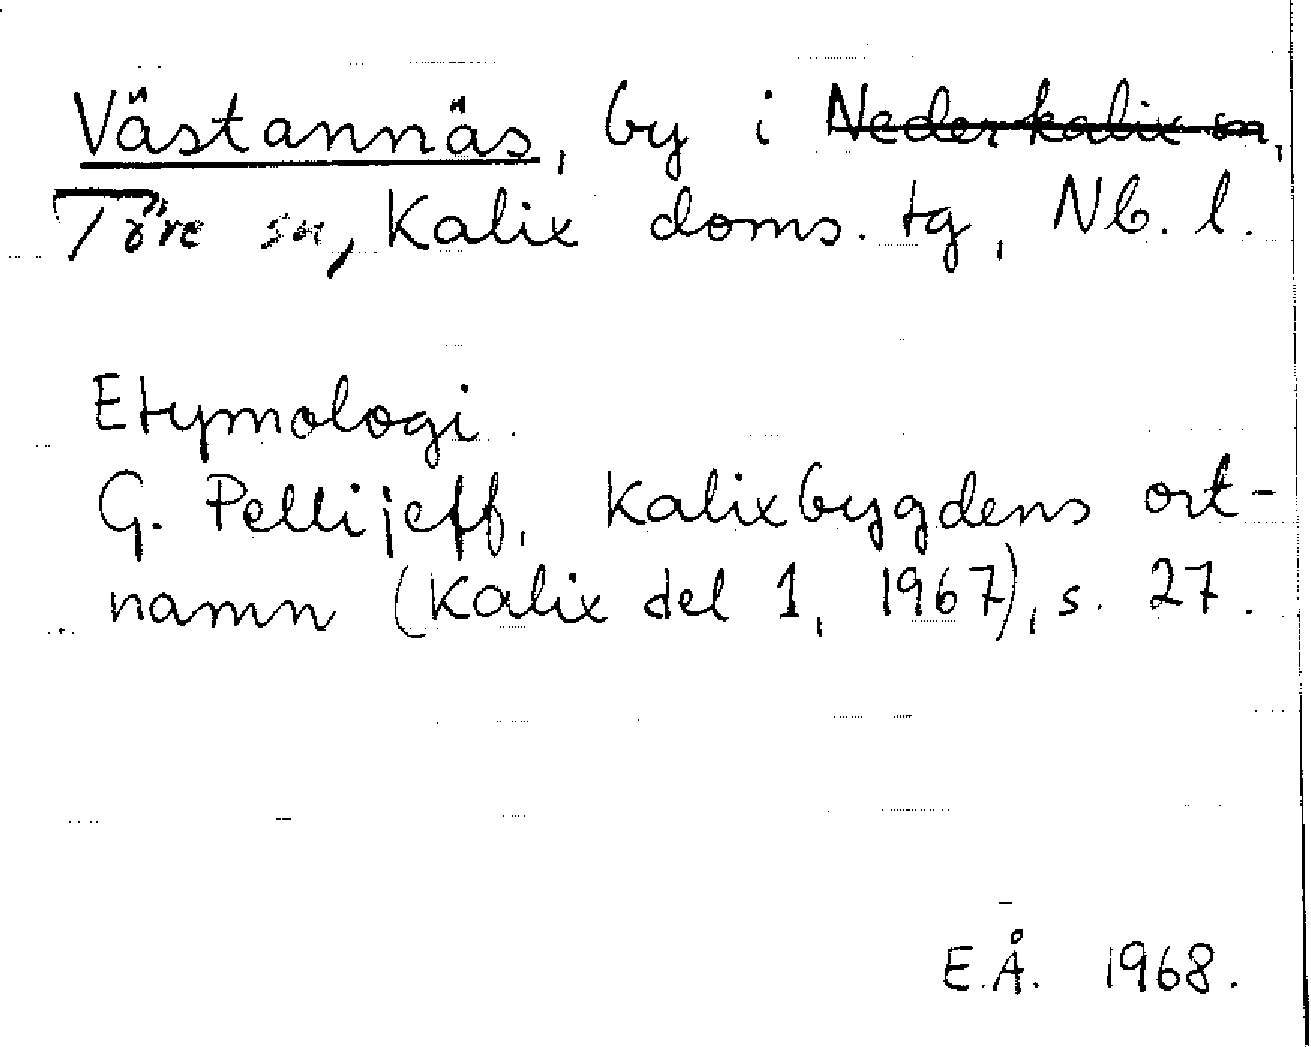 Västannäs, by i Nederkalix sn,
Töre sn, Kalix doms. tg, Nb. l.
Etymologi.
G. Pellijeff, Kalixbygdens ort-
namn (Kalix del 1, 1967), s. 27.
E.Å. 1968.